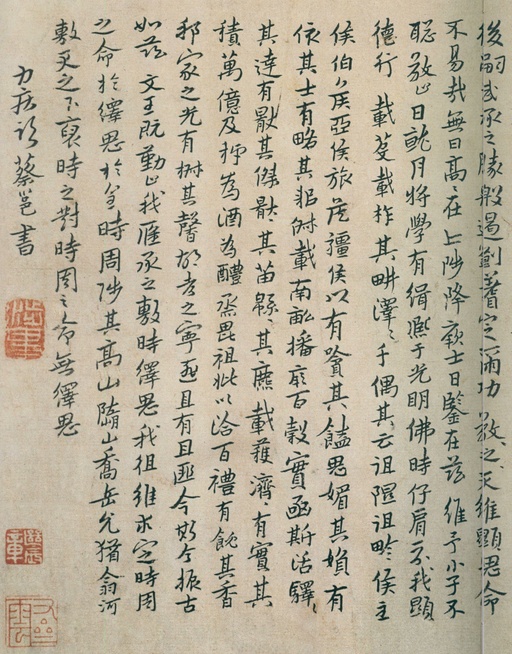 後嗣武承之勝殷遏劉耆定爾功 敬〻之〻天維顯思命
不易哉無曰高〻在上陟降厥士日鑒在茲 維予小子不
聰敬止日就月將學有緝熙于光明佛時仔肩示我顯
德行 載芟載柞其畊澤〻千偶其云徂隰徂畛侯主
侯伯侯亞侯旅侯彊侯以有嗿其饁思媚其婦有
依其士有略其耜俶載南畝播厥百穀實函斯活驛〻
其達有厭其傑厭〻其苗緜〻其麃載穫濟〻有實其
積萬億及秭為酒為醴烝畀祖妣以洽百禮有飶其香
邦家之光有椒其馨胡考之寧匪且有且匪今斯今振古
如茲 文王既勤止我應承之敷時繹思我徂維求定時周
之命於繹思於皇時周陟其高山隨山喬岳允猶翕河
敷天之下裒時之對時周之命無繹思
力疾 蔡邕書